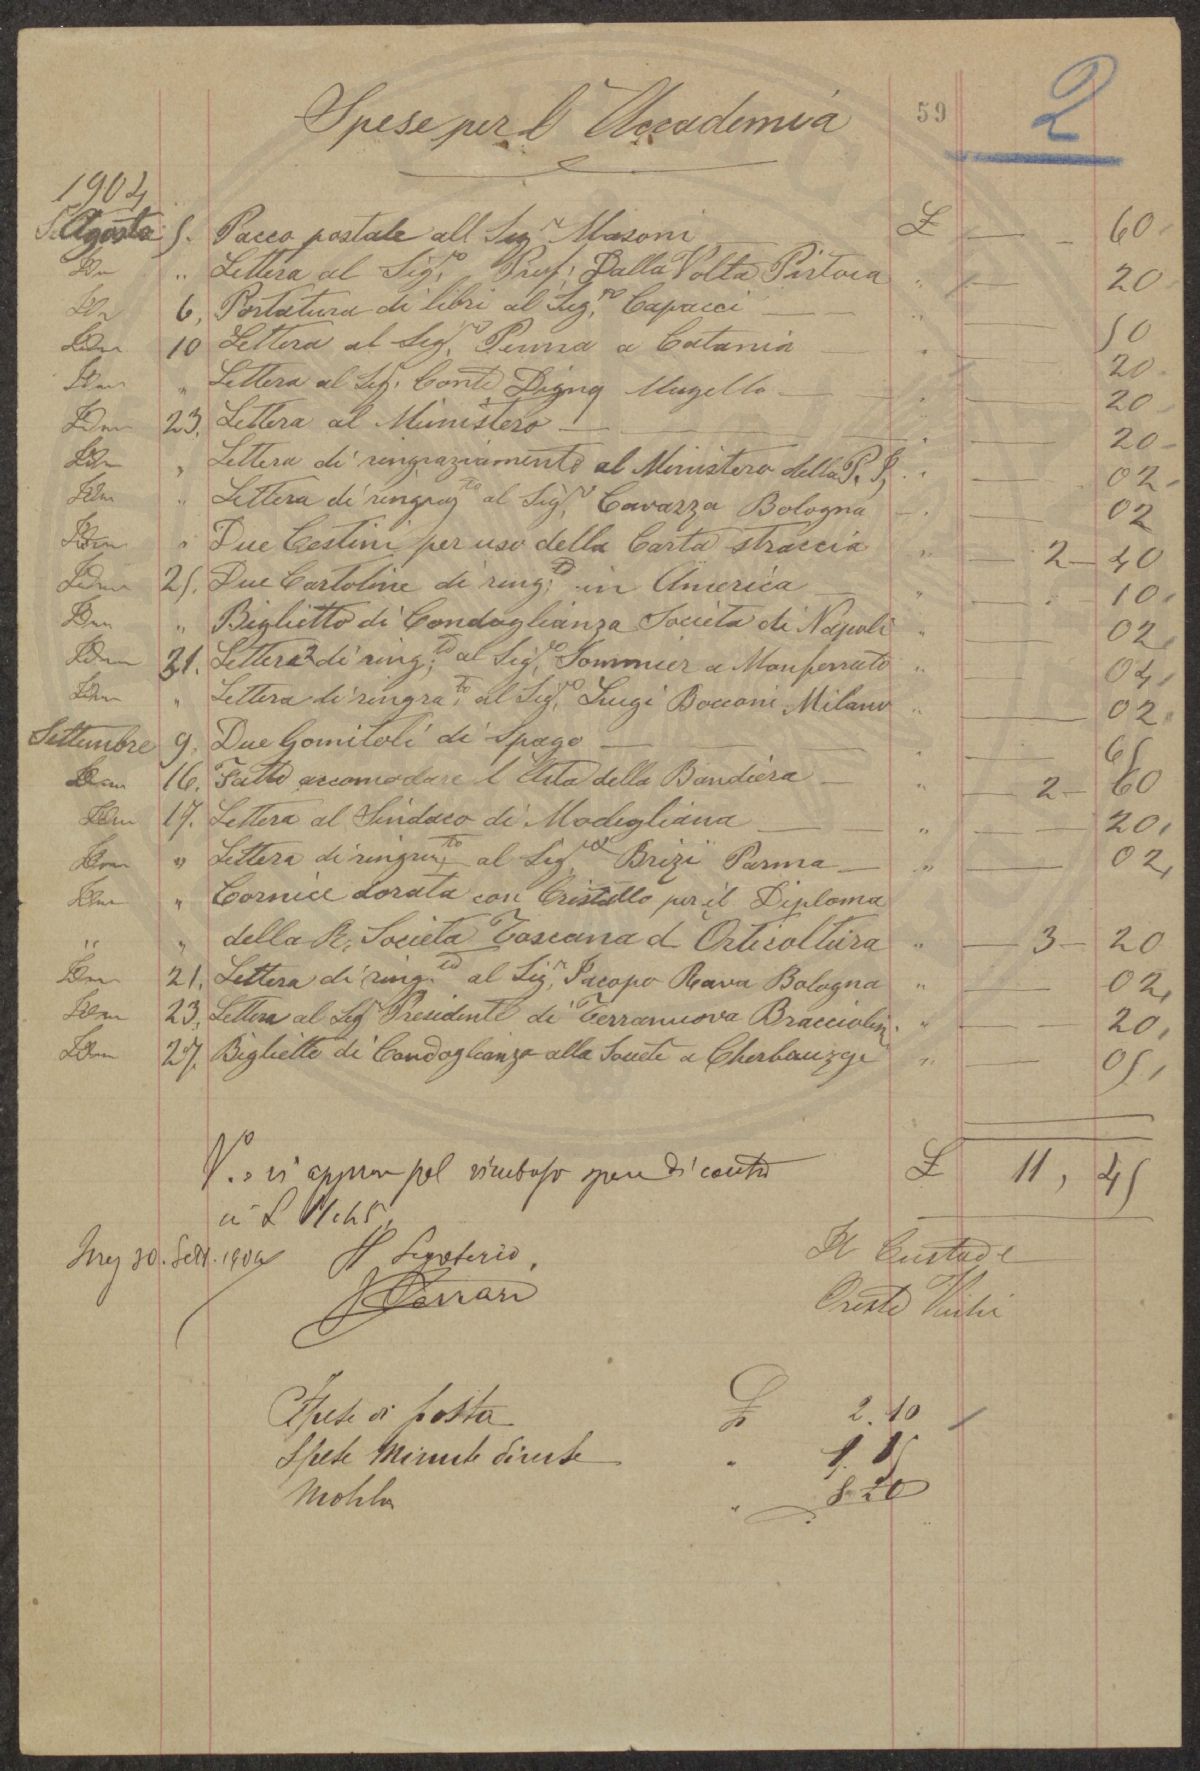 59
2
Spese per l'Accademia
1904
Agosto 5. Pacco postale all Sigr Masoni £ — 60
Idm " Lettera al Sigro Prof: Dalla Volta Pistoia " — 20
Idm 6, Portatura di libri al Sigro Capacci — " — 50
Idm 10 Lettera al Sigro Penna a Catania — " — 20
Idm " Lettera al Sig. Conte Digny Mugello — " — 20
Idm 23, Lettera al Ministero — " — 20
Idm " Lettera di ringraziamento al Ministero della P. I, " — 02
Idm " Lettera di ringrazto al Sigro Cavazza Bologna — " — 02
Idm " Due Cestini per uso della Carta straccia " — 2 — 40
Idm 25. Due Cartoline di ringto in America — " — 10
Idm " Biglietto di Condoglianza Societa di Napoli " — 02
Idm 31. Lettere 2 di ringto al Sigro Sommier a Monferrato " — 04
Idm " Lettera di ringrato al Sigro Luigi Bocconi Milano " — 02
Settembre 9, Due Gomitoli di Spago — " — 65
Idm 16, Fatto accomodare l'Asta della Bandiera — " — 2 — 60
Idm 17. Lettera al Sindaco di Modigliana — " — 20
Idm " Lettera di ringrazto al Sigro Brizi Parma — " — 02
Idm " Cornice dorata con Cristallo per il Diploma
" " della R. Società Toscana d Orticoltura " — 3 — 20
Idm 21, Lettera di ringto al Sigr Jacopo Rava Bologna " — 02
Idm 23, Lettera al Sigr Presidente di Terranuova Bracciolini " — 20
Idm 27, Biglietto di Condoglianza alla Societe a Cherbourg " — 05
£ 11, 45
V.o si approva pel rimborso spese di contro
in L 11.45.
30. Sett. 1904 Il Segretario, Il Custode
Ferrari Oreste
Spese di posta £ 2.10
Spese Minute diverse " 1. 15
Mobilia " 8 20